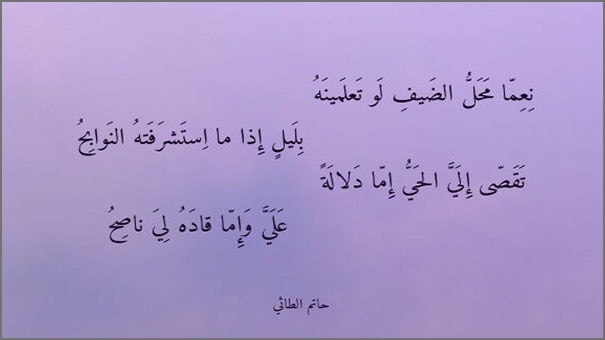 نِعِمّا مَحَلُّ الضَيفِ لَو تَعلَمينَهُ
بِلَيلٍ إِذا ما اِستَشرَفَتهُ النَوابِحُ
تَقَصّى إِلَيَّ الحَيُّ إِمّا دَلالَةً
عَلَيَّ وَإِمّا قادَهُ لِيَ ناصِحُ
حاتم الطائي